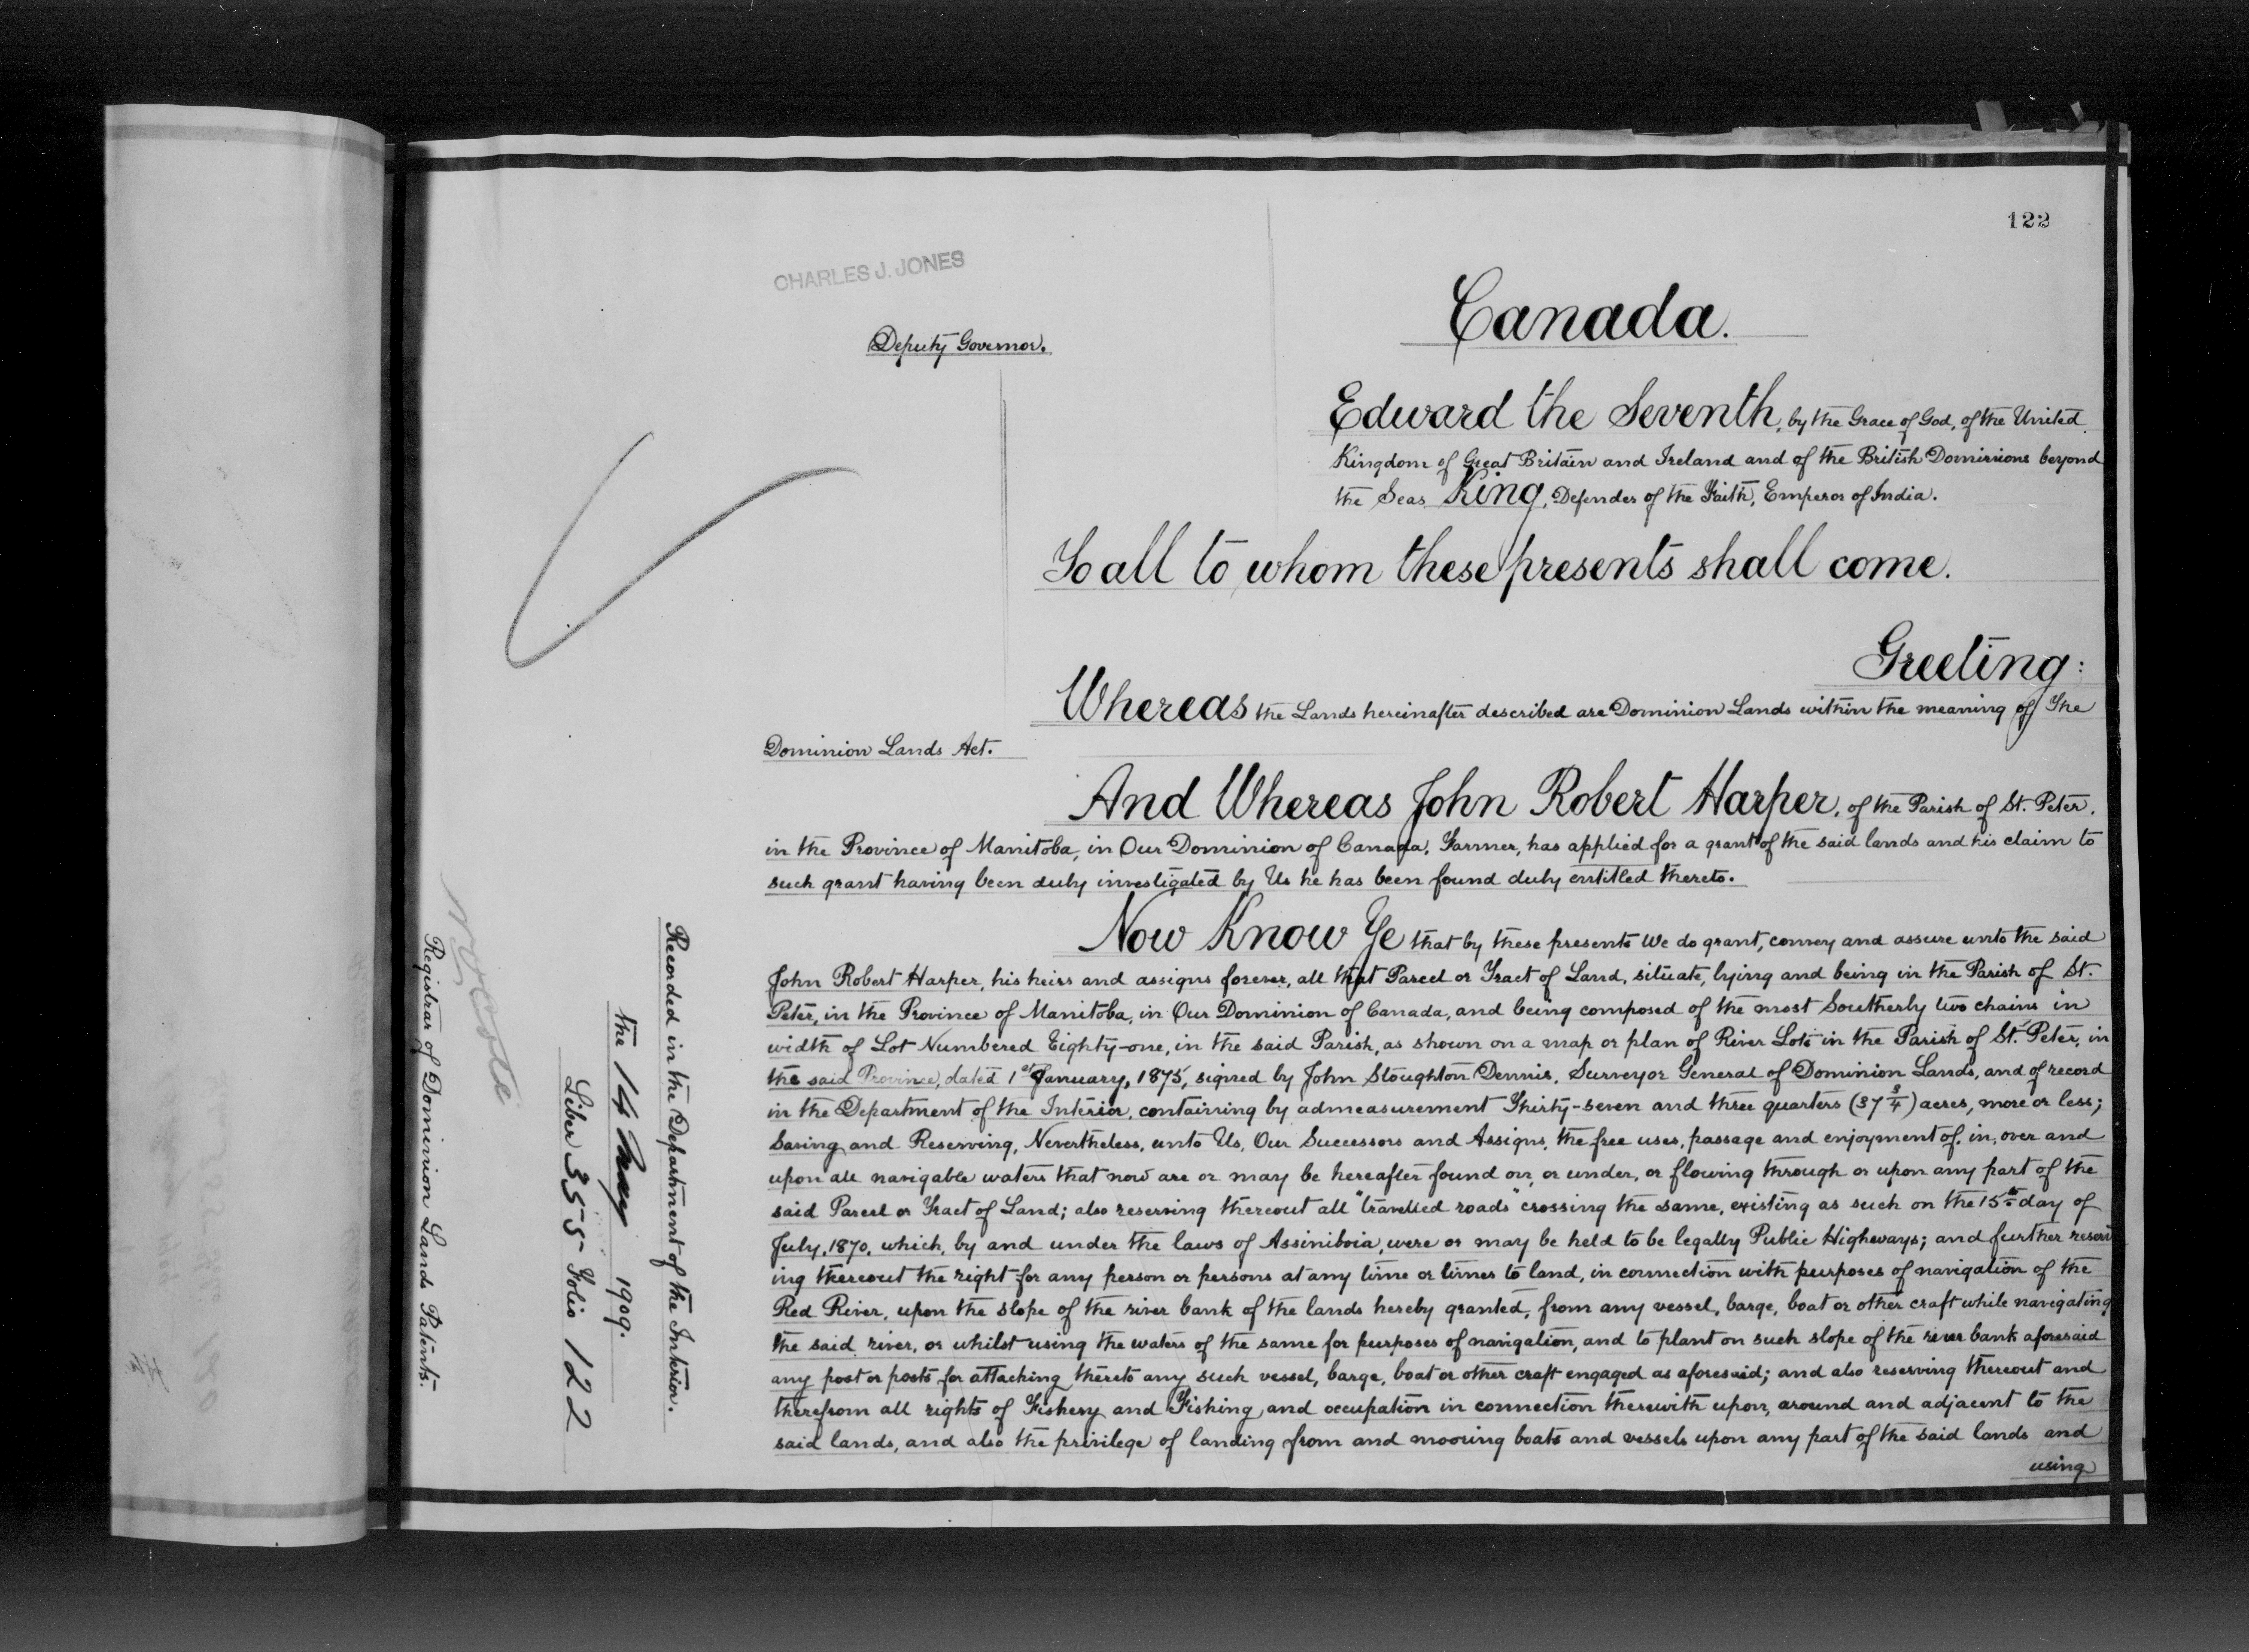 122
CHARLES J. JONES
Deputy Governor.
Canada.
Edward the Seventh, by the Grace of God, of the United
Kingdom of Great Britain and Ireland and of the British Dominions beyond
the Seas King, Defender of the Faith, Emperor of India.
To all to whom these presents shall come.
Greeting:
Whereas the Lands hereinafter described are Dominion Lands within the meaning of The
Dominion Lands Act.
And Whereas John Robert Harper, of the Parish of St. Peter,
in the Province of Manitoba, in Our Dominion of Canada, Farmer, has applied for a grant of the said lands and his claim to
such grant having been duly investigated by Us he has been found duly entitled thereto.
Now Know Ye that by these presents We do grant, convey and assure unto the said
John Robert Harper, his heirs and assigns forever, all that Parcel or Tract of Land, situate, lying and being in the Parish of St.
Peter, in the Province of Manitoba, in Our Dominion of Canada, and being composed of the most Southerly two chains in
width of Lot Numbered Eighty-one, in the said Parish, as shown on a map or plan of River Lots in the Parish of St. Peter, in
the said Province, dated 1st January, 1875, signed by John Stoughton Dennis, Surveyor General of Dominion Lands, and of record
in the Department of the Interior, containing by admeasurement Thirty-seven and three quarters (37 3/4) acres, more or less;
Saving and Reserving, Nevertheless, unto Us, Our Successors and Assigns, the free uses, passage and enjoyment of, in, over and
upon all navigable waters that now are or may be hereafter found on, or under, or flowing through or upon any part of the
said Parcel or Tract of Land; also reserving thereout all "travelled roads" crossing the same, existing as such on the 15th day of
July, 1870, which, by and under the laws of Assiniboia, were or may be held to be legally Public Highways; and further reserv
ing thereout the right for any person or persons at any time or times to land, in connection with purposes of navigation of the
Red River, upon the slope of the river bank of the lands hereby granted, from any vessel, barge, boat or other craft while navigating
the said river, or whilst using the waters of the same for purposes of navigation, and to plant on such slope of the river bank aforesaid
any post or posts for attaching thereto any such vessel, barge, boat or other craft engaged as aforesaid; and also reserving thereout and
therefrom all rights of Fishery and Fishing and occupation in connection therewith upon, around and adjacent to the
said lands, and also the privilege of landing from and mooring boats and vessels upon any part of the said lands and
using
Recorded in the Department of the Interior.
the 14 May 1909.
Liber 355 Folio 122
Registrar of Dominion Lands Patents.